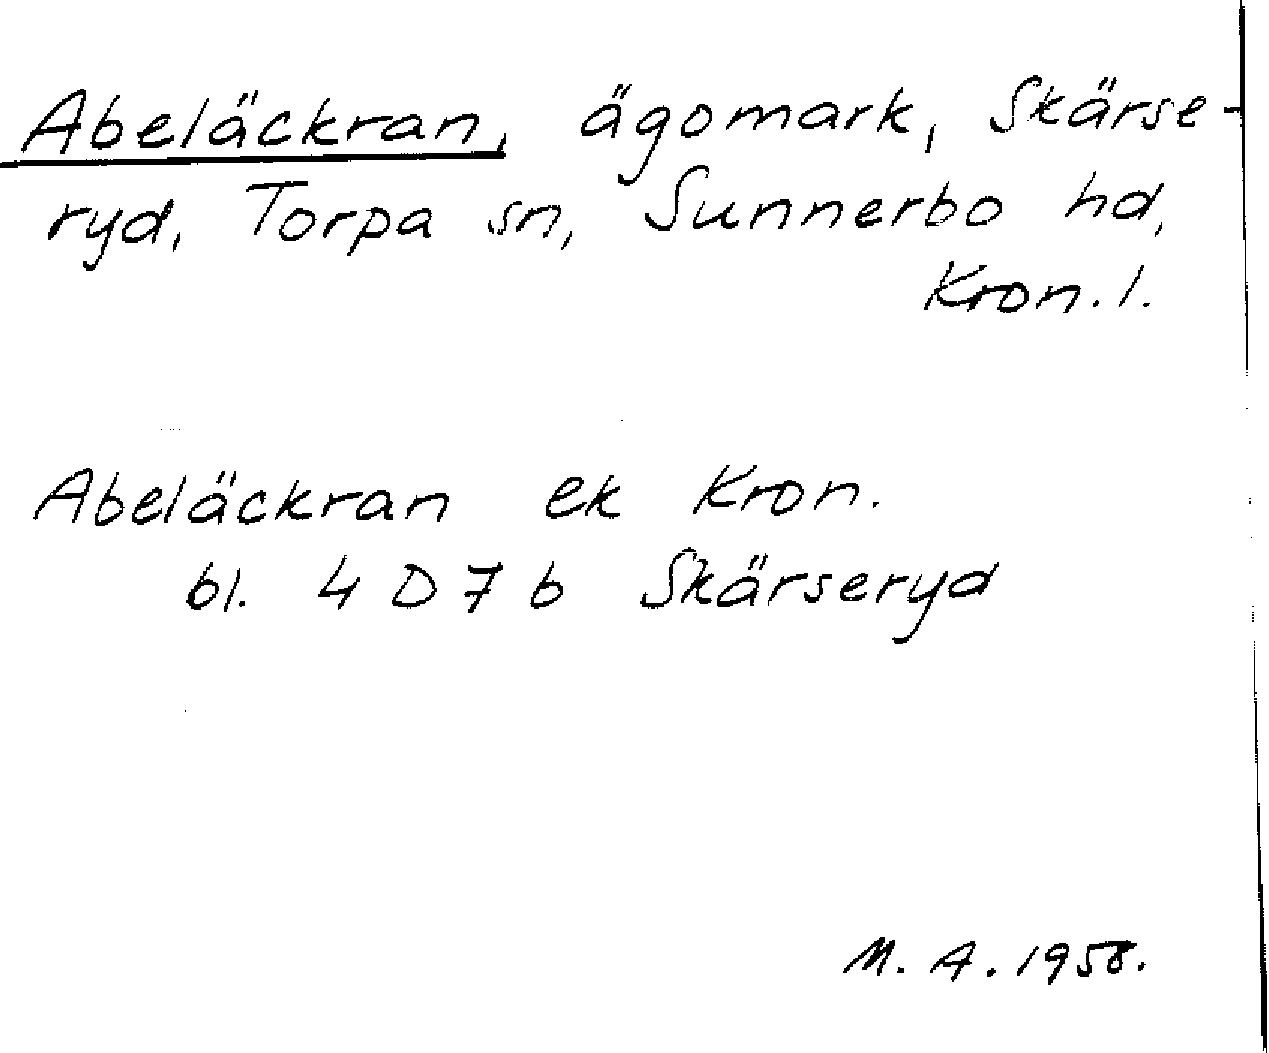 Abeläckran, ägomark, Skärse-
ryd, Torpa sn, Sunnerbo hd,
Kron. l.
Abeläckran ek Kron.
bl. 4 D 7 b Skärseryd
M. A. 1958.